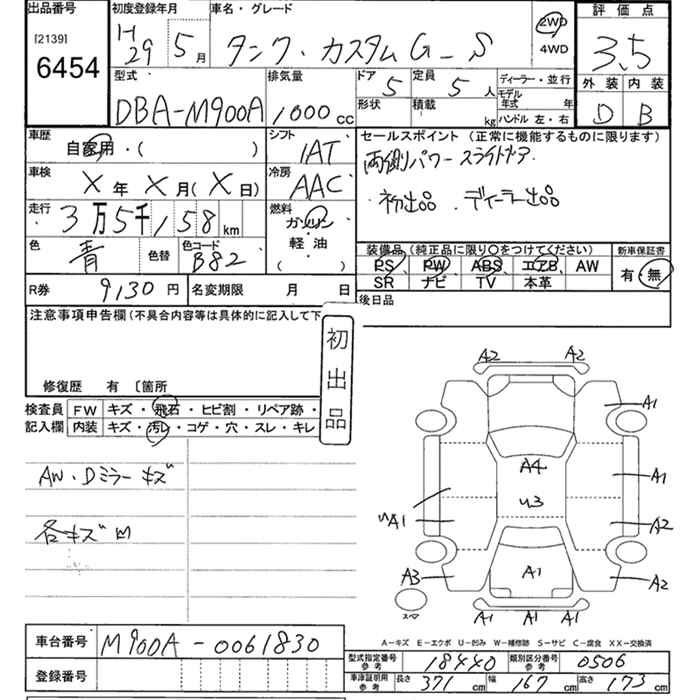 出品番号
[2139]
6454
初度登録年月
H29 5月
車名・グレード
タンク・カスタムG-S
2WD
4WD
評価点
3.5
外装 内装
D B
型式
DBA-M900A
排気量
1000 cc
ドア 5
形状
定員 5 人
積載 kg
ディーラー・並行
モデル年式 年
ハンドル 左・右
車歴
自家用・( )
シフト
IAT
セールスポイント (正常に機能するものに限ります)
両側パワースライドドア
初出品 . ディーラー出品
車検
X年X月(X日)
冷房
AAC
走行
3万5千158km
燃料
ガソリン
軽油
( )
色
青
色替
色コード
B82
装備品 (純正品に限り○をつけてください)
PS、PW、ABS、エアB、AW
SR ナビ TV 本革
新車保証書
有・無
R券 9130円
名変期限 月 日
後日品
注意事項申告欄(不具合内容等は具体的に記入して下
初出品
修復歴 有 〔箇所
検査員記入欄
FW キズ・飛石・ヒビ割・リペア跡・
内装 キズ・汚レ・コゲ・穴・スレ・キレ
AW・Dミラーキズ
各キズM
A2 A2
A1
A4
A1
U3
A1
A2
A3
A1
A2
スペア
A1 A1 A1
A-キズ E-エクボ U-凹み W-補修跡 S-サビ C-腐食 XX-交換済
車台番号 M900A-0061830
登録番号
型式指定番号 参考 18440
類別区分番号 参考 0506
車庫証明用 参考
長さ 371 cm 幅 167 cm 高さ 173 cm